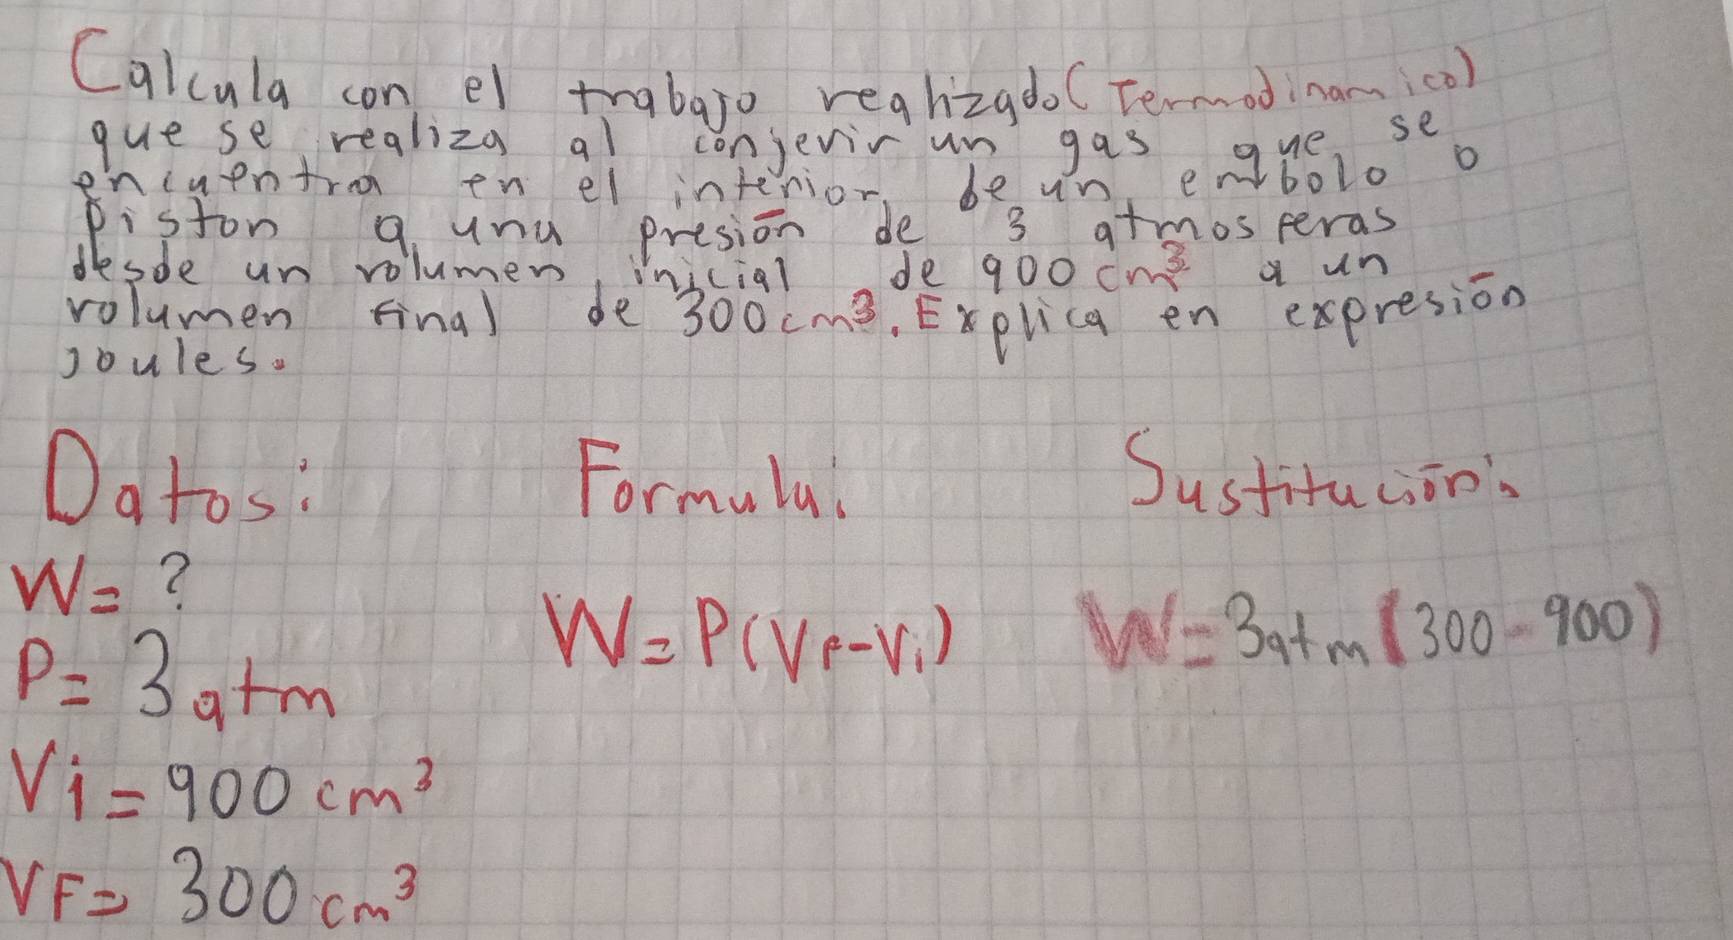 Calcula con el trabajo realizado (Termodinamico)
que se realiza al conjerir un gas que se
encuentra en el interior de un embolo o
piston a una presión de 3 atmosferas
desde un volumen inicial de 900 cm³ a un
volumen final de 300 cm³. Explica en expresión
joules.
Datos: Formula: Sustitución:
W= ?
W=P(VF-Vi) W=3atm(300-900)
P= 3 atm
Vi= 900 cm³
VF= 300 cm³